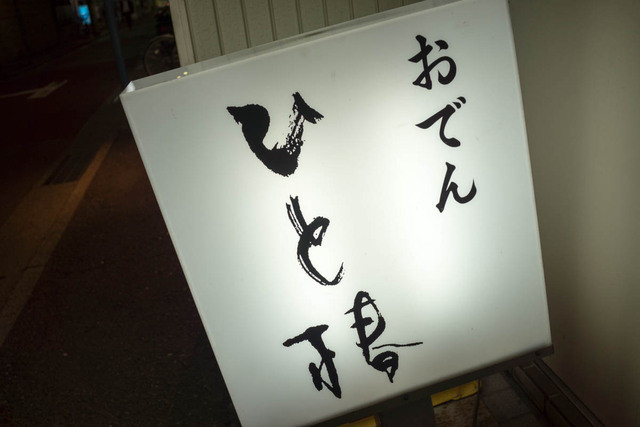 おでん
ひと